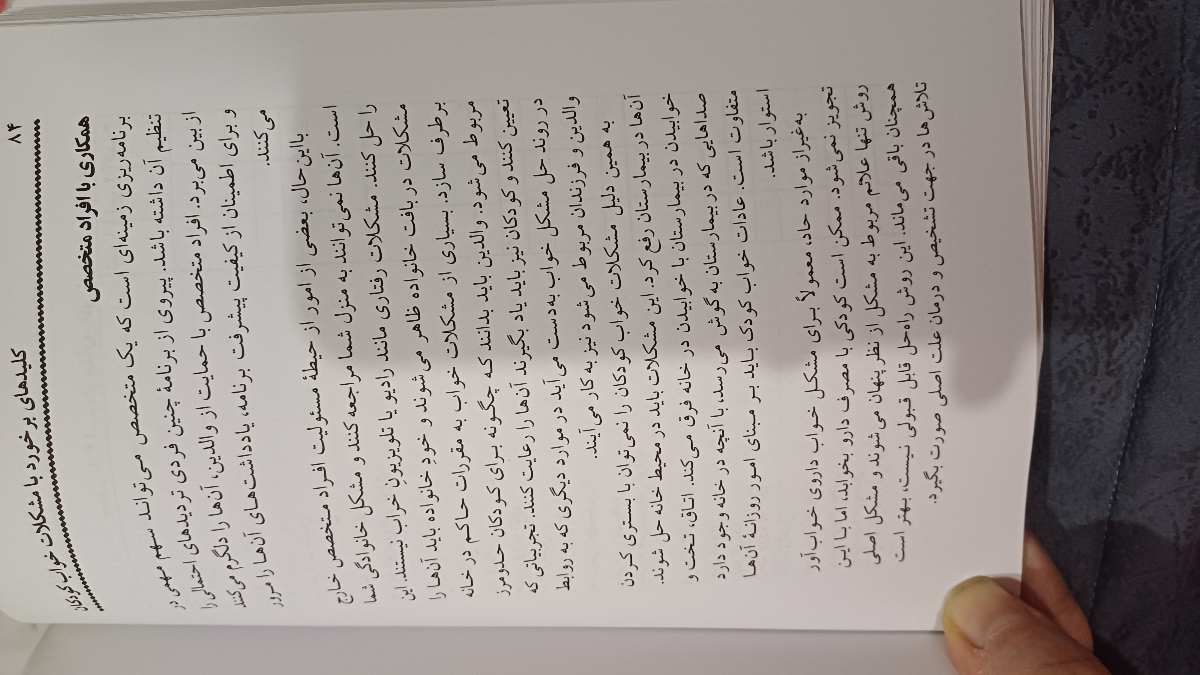 ۸۴
کلیدهای برخورد با مشکلات خواب کودکان
همکاری با افراد متخصص
برنامه‌ریزی زمینه‌ای است که یک متخصص می‌تواند سهم مهمی در
تنظیم آن داشته باشد. پیروی از برنامهٔ چنین فردی تردیدهای احتمالی را
از بین می‌برد. افراد متخصص با حمایت از والدین، آن‌ها را دلگرم می‌کنند
و برای اطمینان از کیفیت پیشرفت برنامه، یادداشت‌های آن‌ها را مرور
می‌کنند.
بااین‌حال، بعضی از امور از حیطهٔ مسئولیت افراد متخصص خارج
است. آن‌ها نمی‌توانند به منزل شما مراجعه کنند و مشکل خانوادگی شما
را حل کنند. مشکلات رفتاری مانند رادیو یا تلویزیونِ خراب نیستند. این
مشکلات در بافت خانواده ظاهر می‌شوند و خودِ خانواده باید آن‌ها را
برطرف سازد. بسیاری از مشکلات خواب به مقررات حاکم در خانه
مربوط می‌شود. والدین باید بدانند که چگونه برای کودکان حدومرز
تعیین کنند و کودکان نیز باید یاد بگیرند آن‌ها را رعایت کنند. تجربیاتی که
در روند حل مشکل خواب به‌دست می‌آید در موارد دیگری که به روابط
والدین و فرزندان مربوط می‌شود نیز به کار می‌آیند.
به همین دلیل مشکلات خواب کودکان را نمی‌توان با بستری کردن
آن‌ها در بیمارستان رفع کرد. این مشکلات باید در محیط خانه حل شوند.
خوابیدن در بیمارستان با خوابیدن در خانه فرق می‌کند. اتاق، تخت و
صداهایی که در بیمارستان به گوش می‌رسد، با آنچه در خانه وجود دارد
متفاوت است. عادات خواب کودک باید بر مبنای امور روزانهٔ آن‌ها
استوار باشد.
به‌غیراز موارد حاد، معمولاً برای مشکل خواب داروی خواب‌آور
تجویز نمی‌شود. ممکن است کودکی با مصرف دارو بخوابد، اما با این
روش تنها علائم مربوط به مشکل از نظر پنهان می‌شوند و مشکل اصلی
همچنان باقی می‌ماند. این روش راه‌حل قابل قبولی نیست، بهتر است
تلاش‌ها در جهت تشخیص و درمان علت اصلی صورت بگیرد.